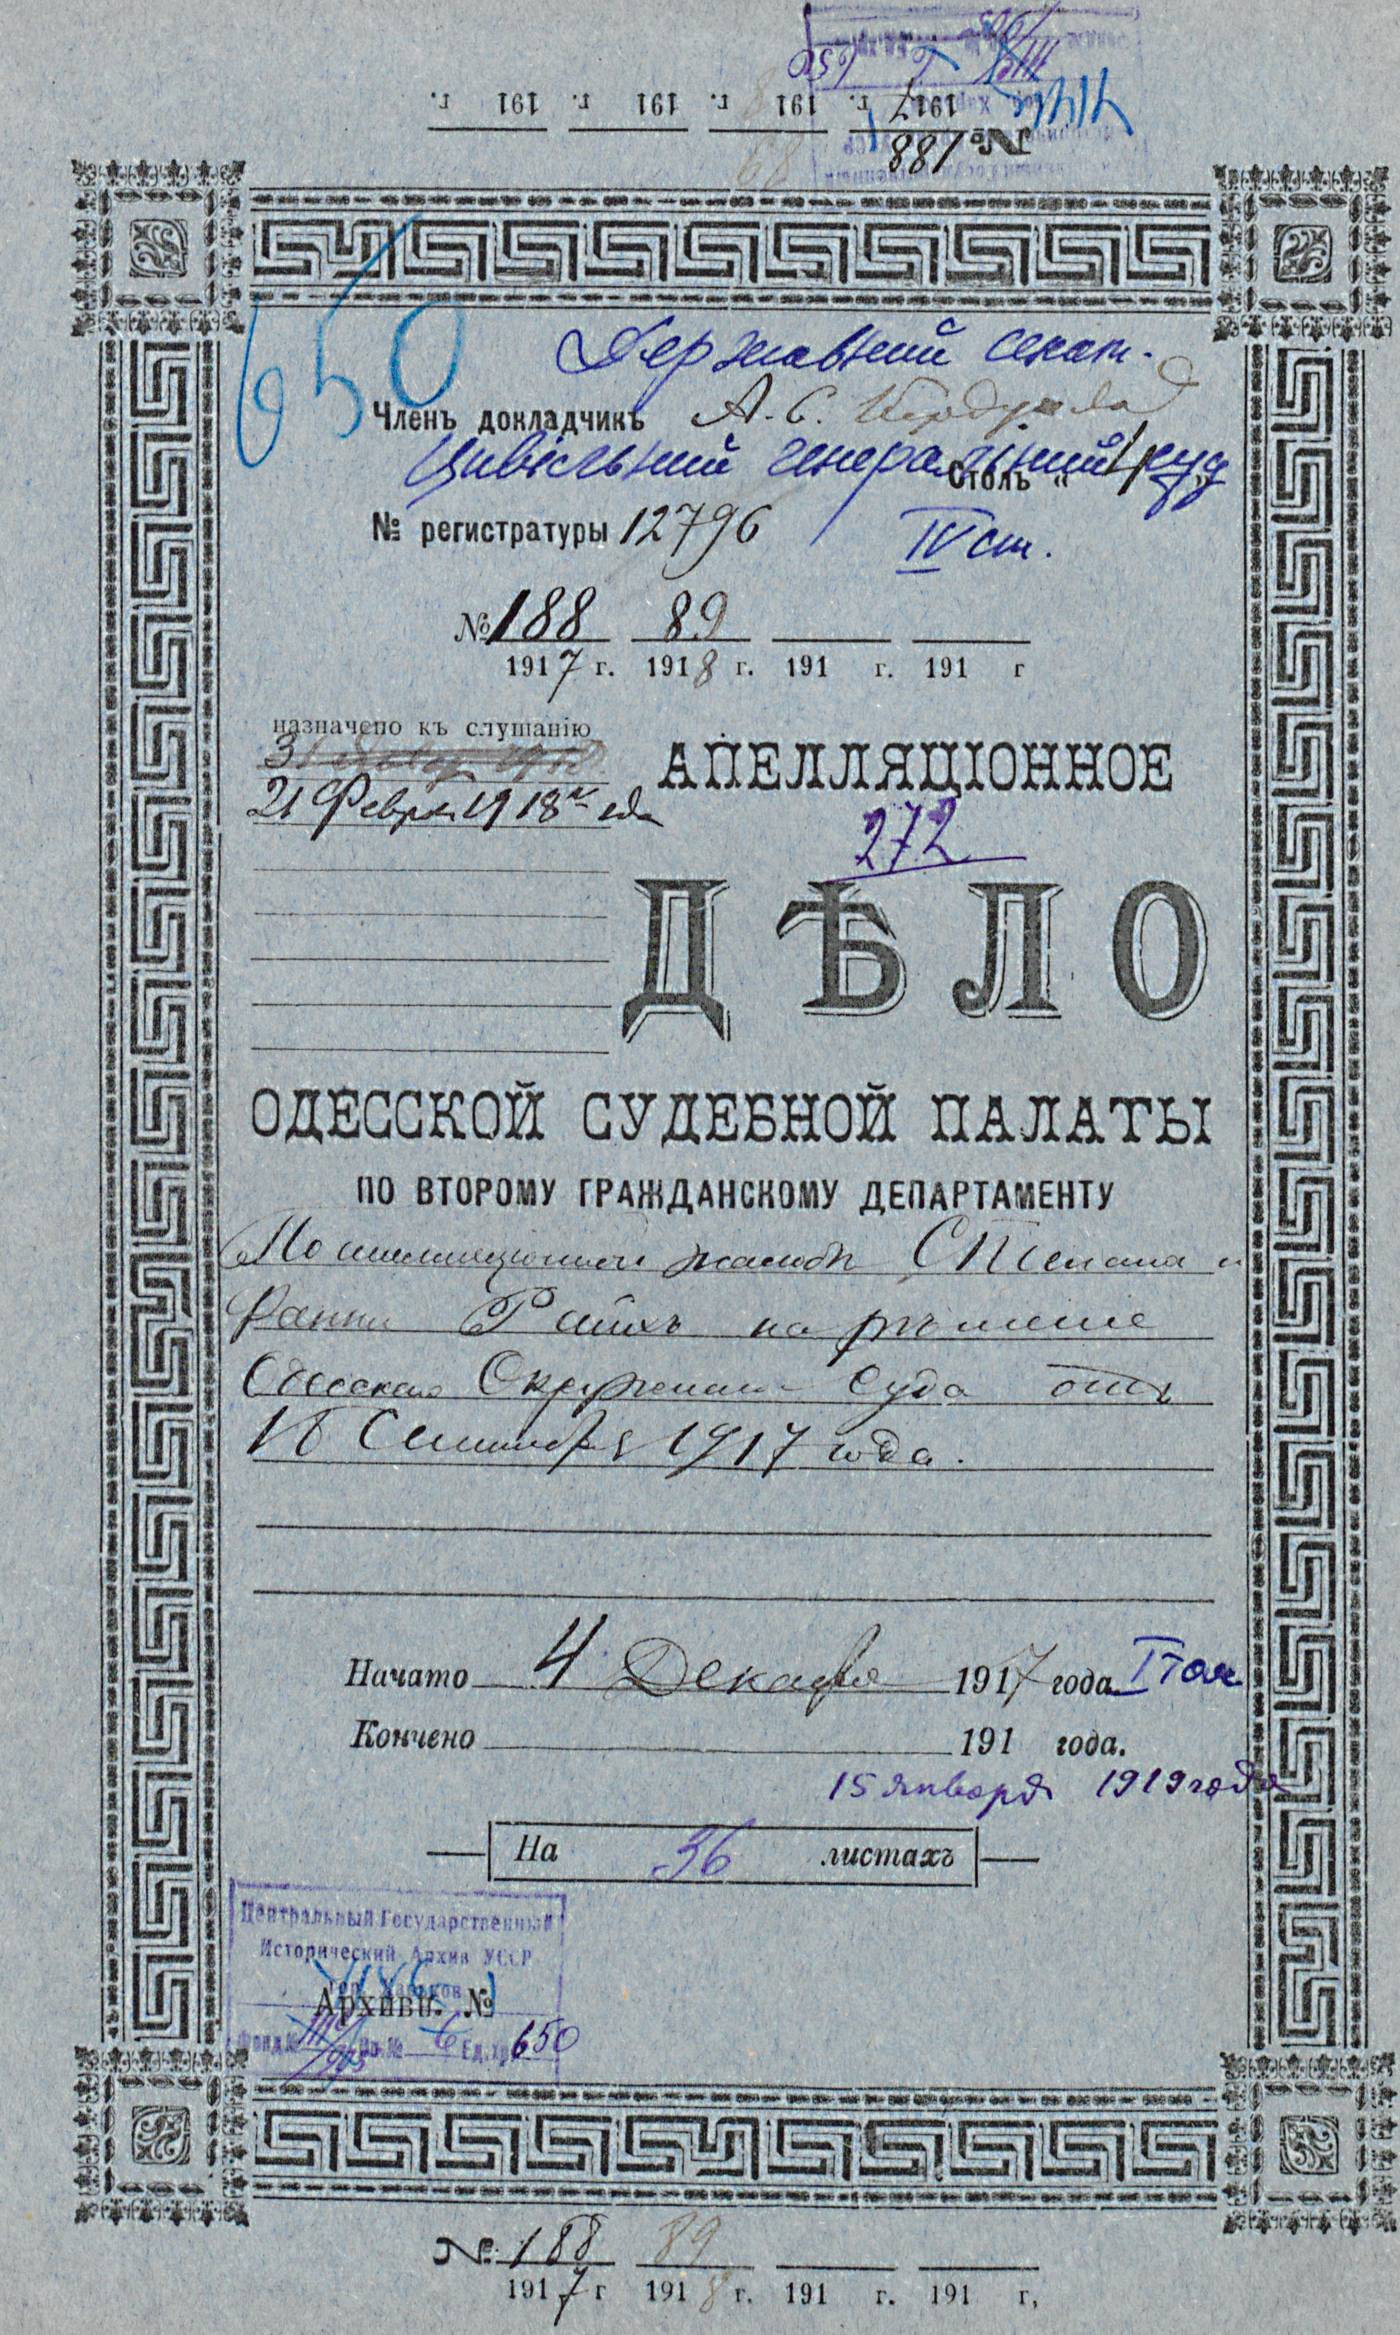 191 г. 191 г. 191 г. 1917 г.
№ 188
650
Державний сенат.
Членъ докладчикъ А. С.
Цивільний генеральний суд
Столъ « 4 »
№ регистратуры 12796 IV ст.
№ 188 89
1917 г. 1918 г. 191 г. 191 г
назначено къ слушанію
31
21 Февр. 1918 года
АПЕЛЛЯЦІОННОЕ
272
ДѢЛО
ОДЕССКОЙ СУДЕБНОЙ ПАЛАТЫ
ПО ВТОРОМУ ГРАЖДАНСКОМУ ДЕПАРТАМЕНТУ
По апелляционной жалобѣ и
Ранни Райхъ на рѣшеніе
Одесскаго Окружнаго Суда отъ
16 Сентября 1917 года.
Начато 4 Декабря 1917 года. I том
Кончено 191 года.
15 января 1919 года
На 36 листахъ
Центральный Государственный
Исторический Архив УССР
гор. Харьков
Архивн. №
Фонд № Оп. № 6 Ед. хр. 650
№ 188 89
1917 г 1918 г. 191 г. 191 г,